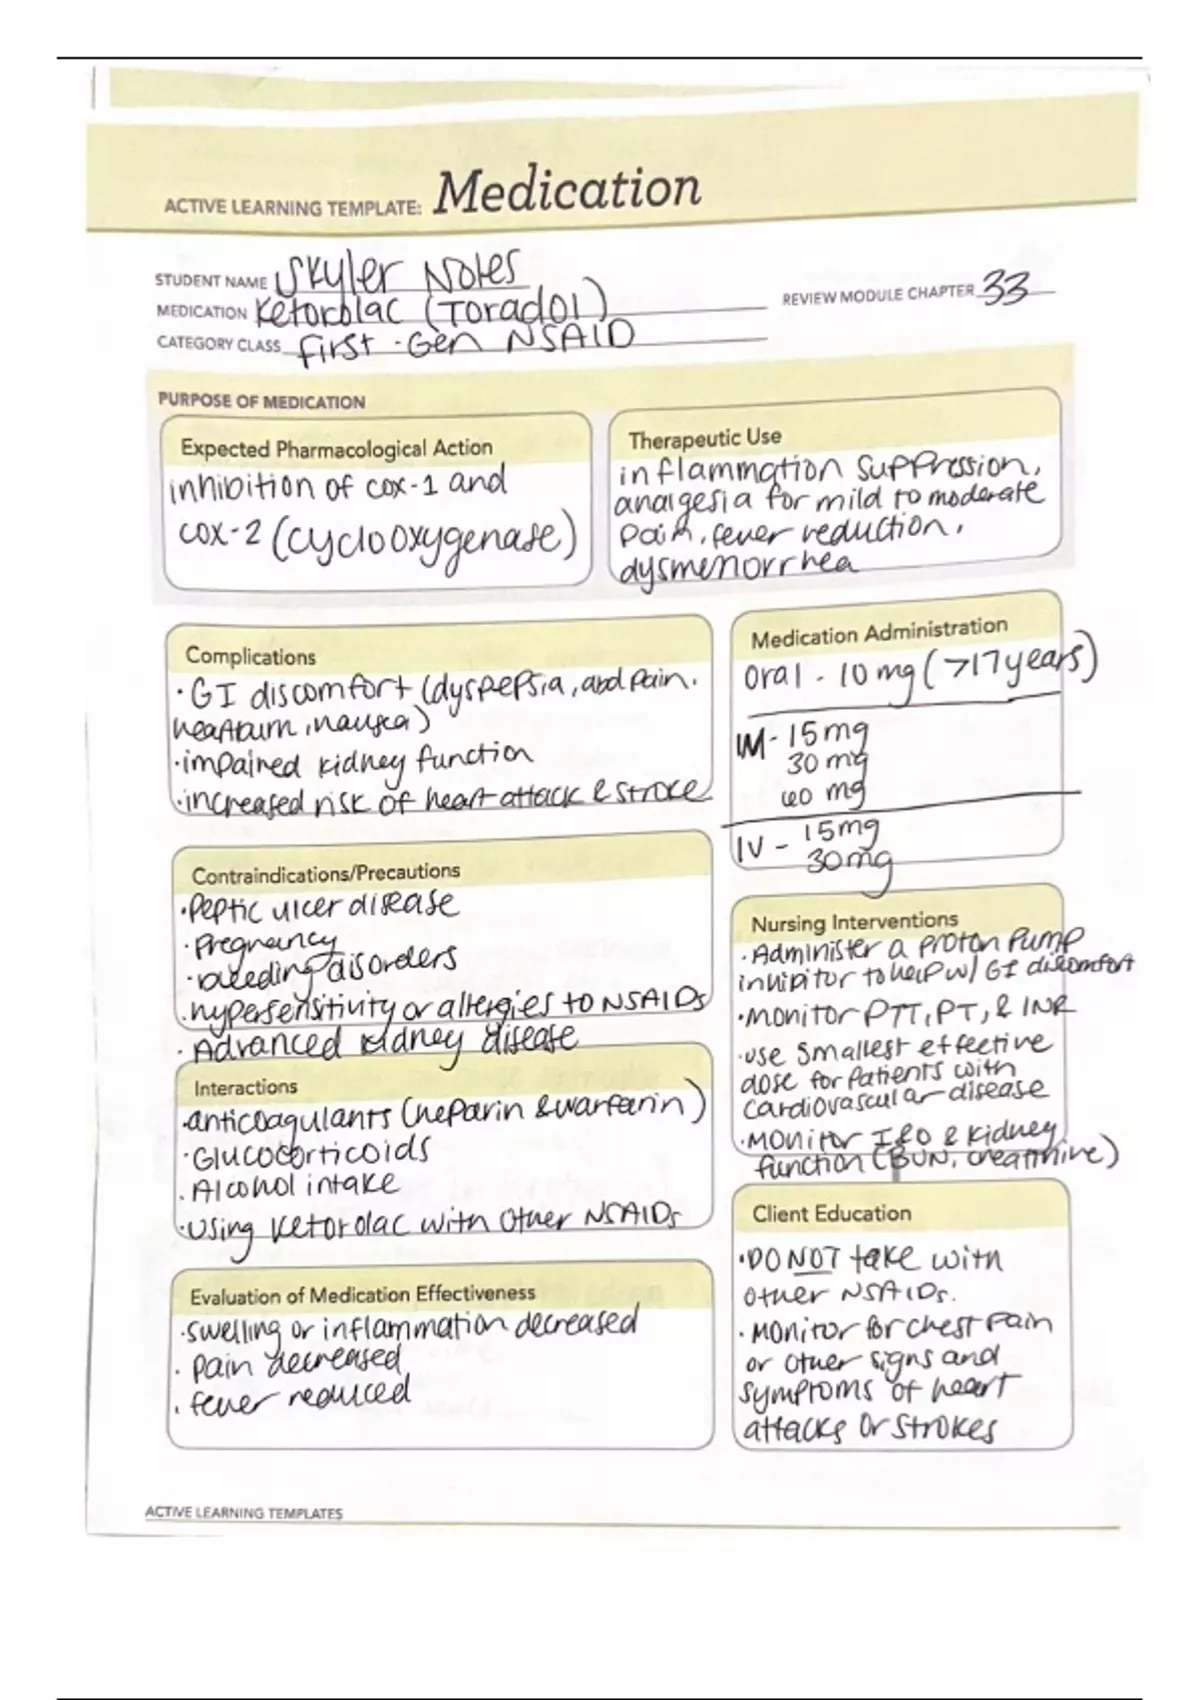 ACTIVE LEARNING TEMPLATE: Medication
STUDENT NAME Skyler Notes
MEDICATION Ketorolac (Toradol)
REVIEW MODULE CHAPTER 33
CATEGORY CLASS First-Gen NSAID
PURPOSE OF MEDICATION
Expected Pharmacological Action
inhibition of cox-1 and
cox-2 (cyclooxygenase)
Therapeutic Use
inflammation suppression,
analgesia for mild to moderate
pain, fever reduction,
dysmenorrhea
Complications
• GI discomfort (dyspepsia, abd pain,
heartburn, nausea)
• impaired kidney function
• increased risk of heart attack & stroke
Medication Administration
Oral - 10 mg (>17 years)
IM - 15 mg
30 mg
60 mg
IV - 15mg
30mg
Contraindications/Precautions
• Peptic ulcer disease
• Pregnancy
• bleeding disorders
• hypersensitivity or allergies to NSAIDs
• Advanced kidney disease
Nursing Interventions
• Administer a proton pump
inhibitor to help w/ GI discomfort
• monitor PTT, PT, & INR
• use smallest effective
dose for patients with
cardiovascular disease
• monitor I&O & kidney
function (BUN, creatinine)
Interactions
• anticoagulants (heparin & warfarin)
• Glucocorticoids
• Alcohol intake
• using Ketorolac with other NSAIDs
Client Education
• DO NOT take with
other NSAIDs.
• Monitor for chest pain
or other signs and
symptoms of heart
attacks or strokes
Evaluation of Medication Effectiveness
• swelling or inflammation decreased
• pain decreased
• fever reduced
ACTIVE LEARNING TEMPLATES